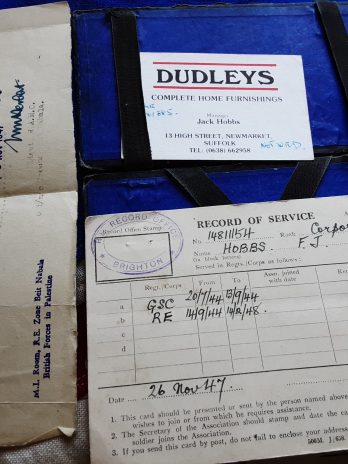 DUDLEYS
COMPLETE HOME FURNISHINGS
Manager
Jack Hobbs
13 HIGH STREET, NEWMARKET,
SUFFOLK
TEL: (0638) 662958
M.I. Room, R.E. Zone Beit Nabala
British Forces in Palestine
RECORD OFFICE
BRIGHTON
Record Office Stamp
RECORD OF SERVICE
No. 14811154 Rank Corpo
Name HOBBS F. J.
(in block letters)
Served in Regts./Corps as follows:
Regt./Corps From To Assn. joined with date
a GSC 20/7/44 13/9/44
b RE 14/9/44 14/2/48.
c
d
Date 26 Nov 47.
1. This card should be presented or sent by the person named above
wishes to join or from which he requires assistance.
2. The Secretary of the Association should stamp and date the ca
soldier joins the Association.
3. If you send this card by post, do not fail to enclose your address